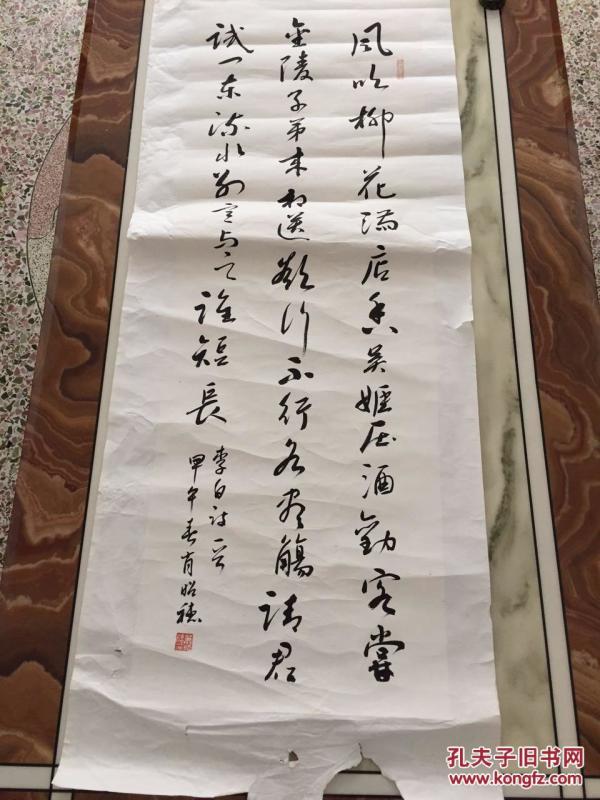 風吹柳花滿店香吳姬压酒勸客嘗
金陵子弟来相送欲行不行各盡觴請君
試问東流水别意与之誰短長
李白詩一首
甲午春肖昭穗
孔夫子旧书网
www.kongfz.com